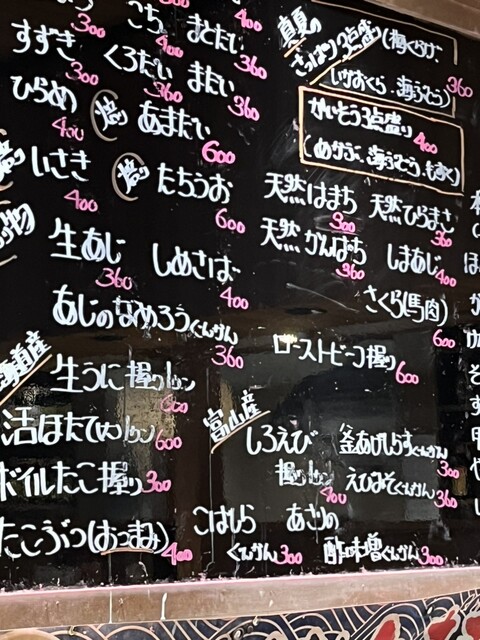 こち 400
まとだい 360
すずき 300
くろだい 360
まだい 360
ひらめ 400
炙 あまだい 600
炙 いさき 400
炙 たちうお 600
生あじ 360
しめさば 400
あじのなめろうぐんかん 360
海道産
生うに握り 600
活ほたて 600
ボイルたこ握り 300
たこぶつ(おつまみ) 400
真夏の
さっぱり3点盛り(梅くらげ、
いけおくら、海ぶどう) 360
かいそう3点盛り 400
(めかぶ、海ぶどう、もずく)
天然はまち 300
天然ひらまさ 360
天然かんぱち 360
しまあじ 400
さくら(馬肉) 600
ローストビーフ握り 600
富山産
しろえび
握り 400
釜あげしらすぐんかん 300
えびみそぐんかん 360
こはしら
ぐんかん 300
あさりの
酢味噌ぐんかん 300